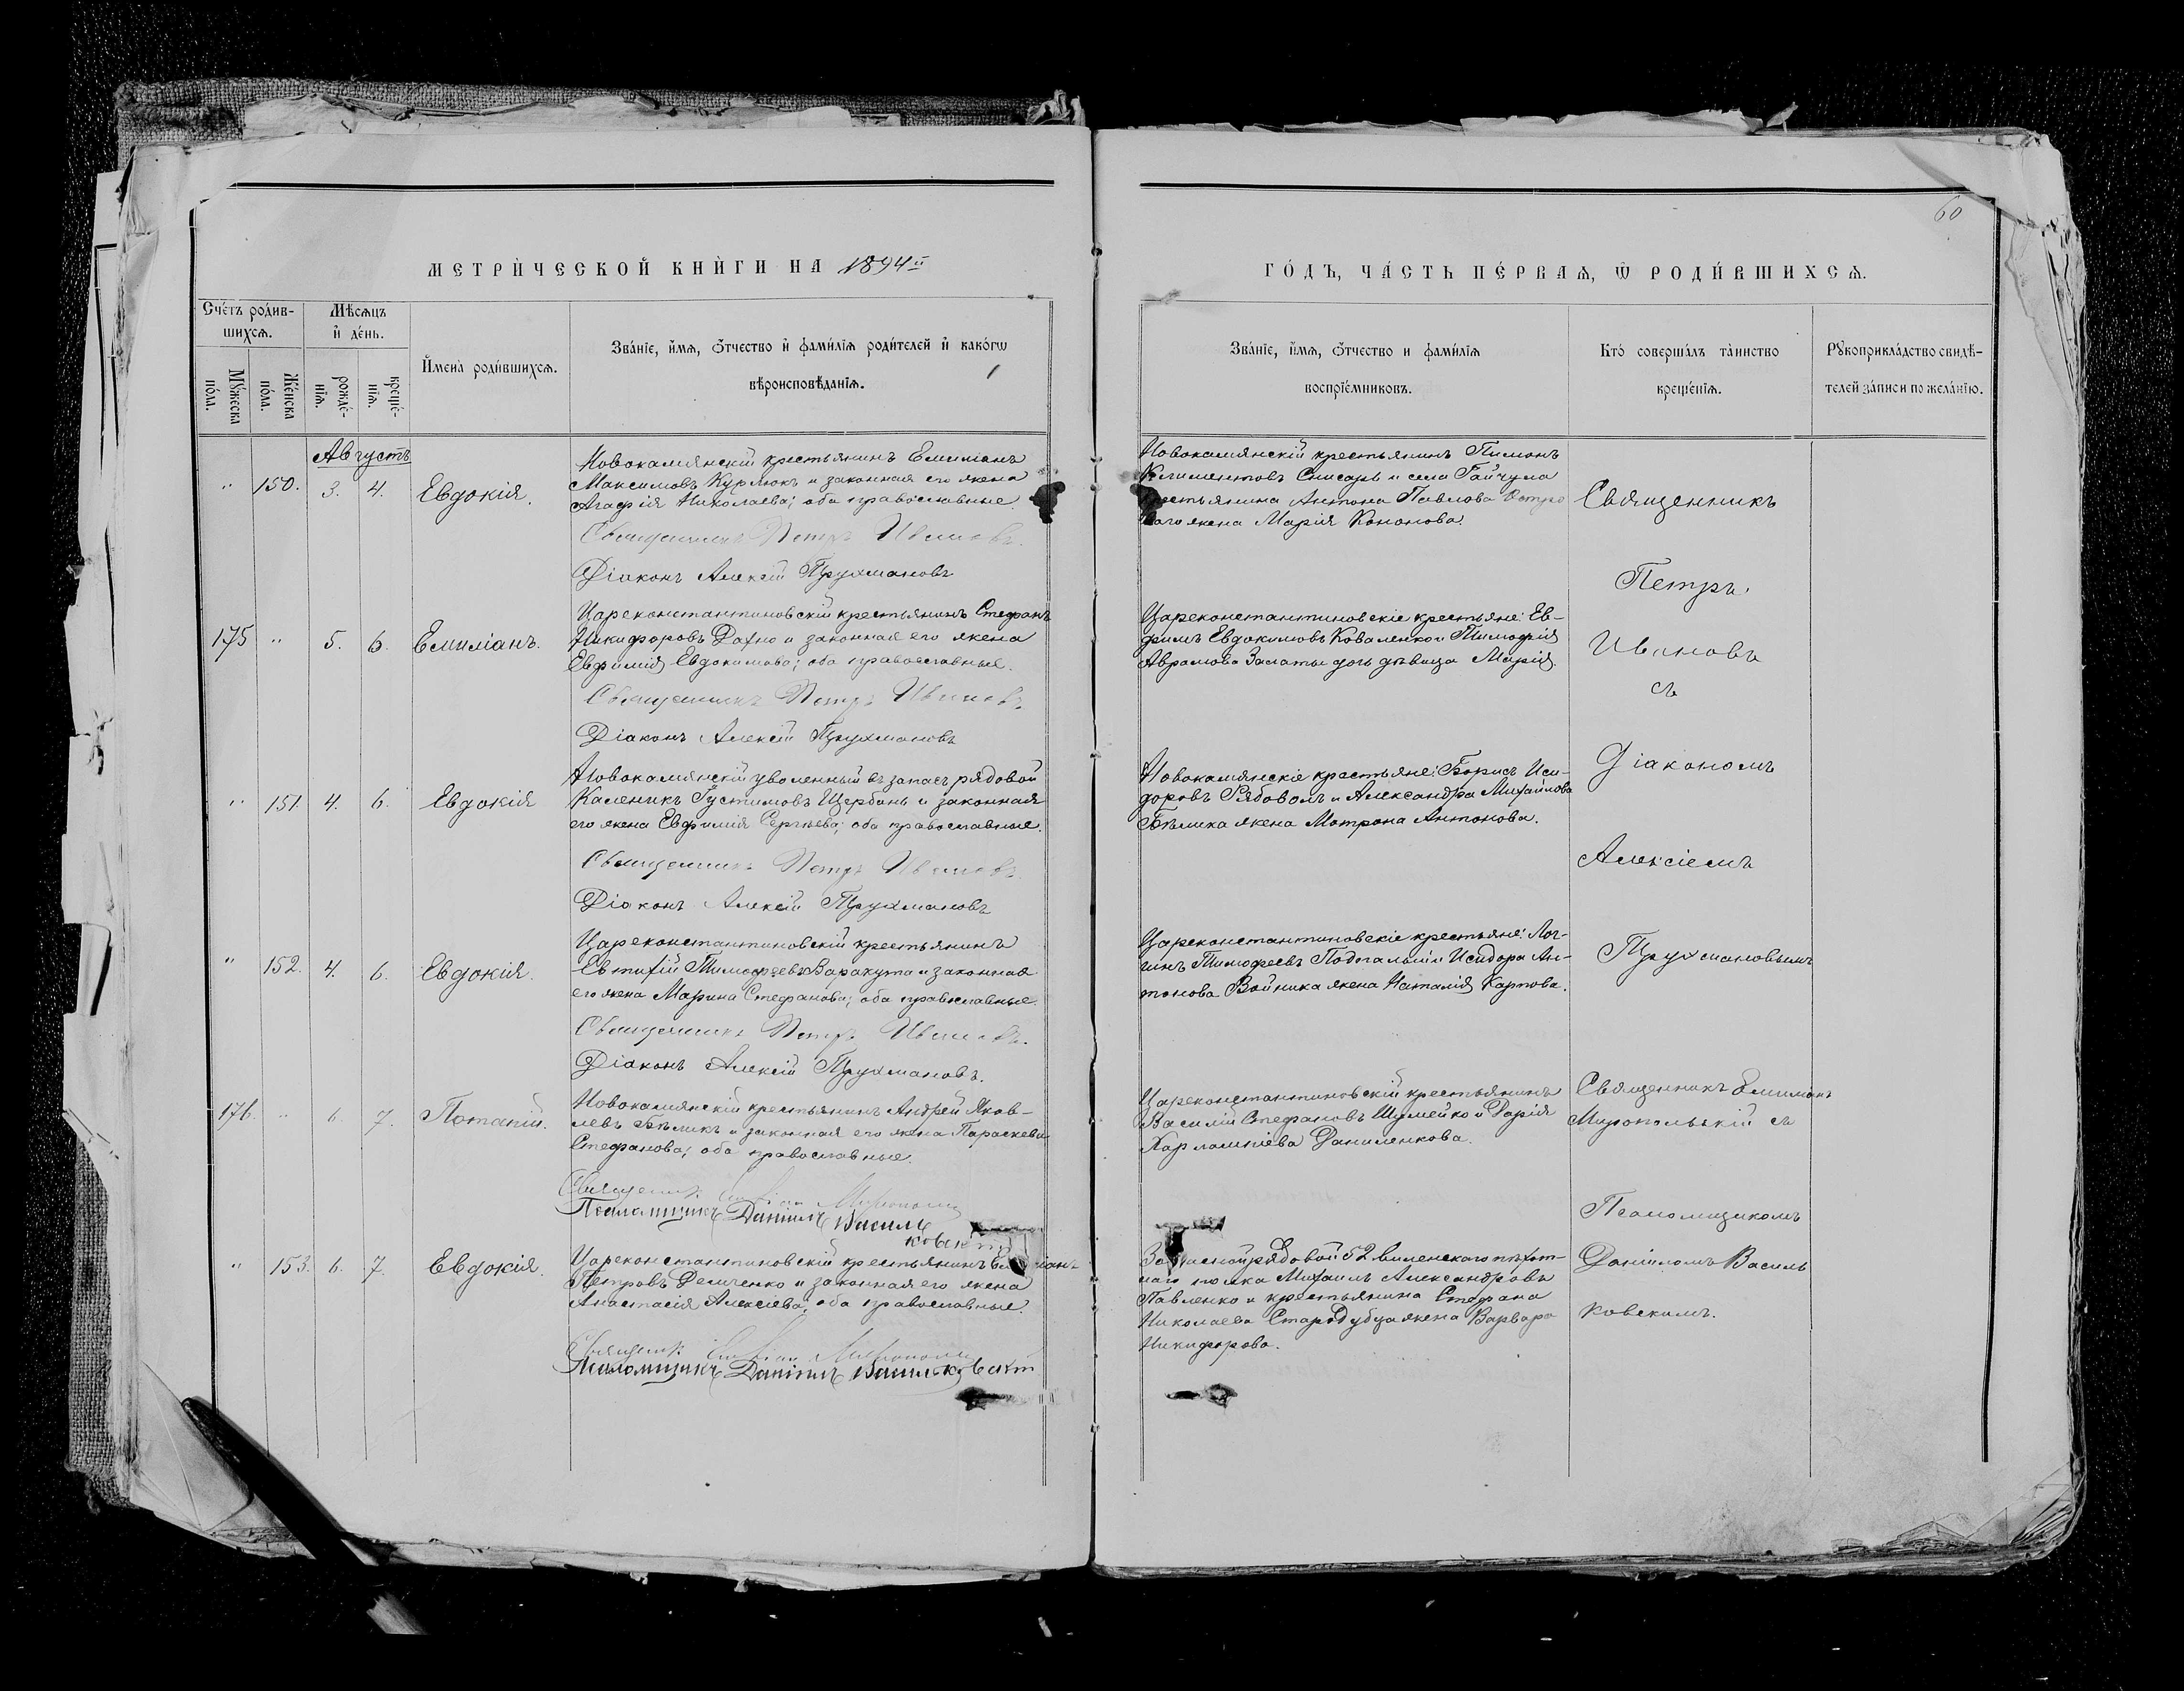 60
МЕТРИ́ЧЕСКОЙ КНИ́ГИ НА 1894й
ГО́ДЪ, ЧА́СТЬ ПЕ́РВАѦ, Ѿ РОДИ́ВШИХСѦ.
Сче́тъ роди́в-
шихсѧ.
Мꙋ́жеска по́ла.
Же́нска по́ла.
Мѣ́сѧцъ и҆ де́нь.
рожде́-нїѧ.
креще́-нїѧ.
И҆мена̀ роди́вшихсѧ.
Зва́нїе, и҆́мѧ, ѻ҆́тчество и҆ фами́лїѧ роди́телей и҆ како́гѡ
вѣроисповѣ́данїѧ.
Зва́нїе, и҆́мѧ, ѻ҆́тчество и фами́лїѧ
воспрїе́мниковъ.
Кто́ соверша́лъ та́инство
креще́нїѧ.
Рꙋкоприкла́дство свидѣ́-
телей за́писи по жела́нїю.
Августъ
" 150. 3. 4. Евдокія.
Новокамянскій крестьянинъ Емиліанъ
Максимовъ Курлюкъ и законная его жена
Агафія Николаева; оба православные.
Священникъ Петръ Ивановъ.
Діаконъ Алексій Трухмановъ
Новокамянскій крестьянинъ Пименъ
Климентовъ Снисарь и села Гайчула
крестьянина Антона Павлова
жена Марія Кононова.
175 " 5. 6. Емиліанъ.
Цареконстантиновскій крестьянинъ Стефанъ
Никифоровъ Дахно и законная его жена
Евфимія Евдокимова; оба православные.
Священникъ Петръ Ивановъ
Діаконъ Алексій Трухмановъ
Цареконстантиновскіе крестьяне: Ев-
фимъ Евдокимовъ Коваленко и Тимофія
Аврамова Заматы дочь дѣвица Марія.
" 151. 4. 6. Евдокія
Новокамянскій уволенный въ запасъ рядовой
Каленикъ Густимовъ Щербань и законная
его жена Евфимія Сергѣева; оба православные.
Священникъ Петръ Ивановъ
Діаконъ Алексій Трухмановъ
Новокамянскіе крестьяне: Борисъ Иси-
доровъ Рябоволъ и Александра Михайлова
Бѣлика жена Матрона Антонова.
" 152. 4. 6. Евдокія.
Цареконстантиновскій крестьянинъ
Евтихій Тимофеевъ Варакута и законная
его жена Марина Стефанова; оба православные.
Священникъ Петръ Ивановъ.
Діаконъ Алексій Трухмановъ.
Цареконстантиновскіе крестьяне: Лог-
гинъ Тимофеевъ и Исидора Ан-
тонова Войника жена Наталія Карпова.
Священникъ
Петръ
Ивановъ
съ
Діакономъ
Алексіемъ
Трухмановымъ
176. " 6. 7. Потапій.
Новокамянскій крестьянинъ Андрей Яков-
левъ Бѣликъ и законная его жена Параскева
Стефанова; оба православные.
Священникъ Емиліан Мирополь
Псаломщикъ Даніилъ Василь
ковскій
Цареконстантиновскій крестьянинъ
Василій Стефановъ Шумейко и Дарія
Харлампіева Даниленкова.
Священникъ Емиліанъ
Миропольскій съ
Псаломщикомъ
Даніиломъ Василь
ковскимъ.
" 153. 6. 7. Евдокія.
Цареконстантиновскій крестьянинъ
Петровъ Демченко и законная его жена
Анастасія Алексіева; оба православные.
Священникъ Емиліан Мирополь
Псаломщикъ Даніилъ Васильковскій
Запасной рядовой 52 Виленскаго пѣхот-
наго полка Михаилъ Александровъ
Павленко и крестьянина Стефана
Николаева Стародубца жена Варвара
Никифорова.